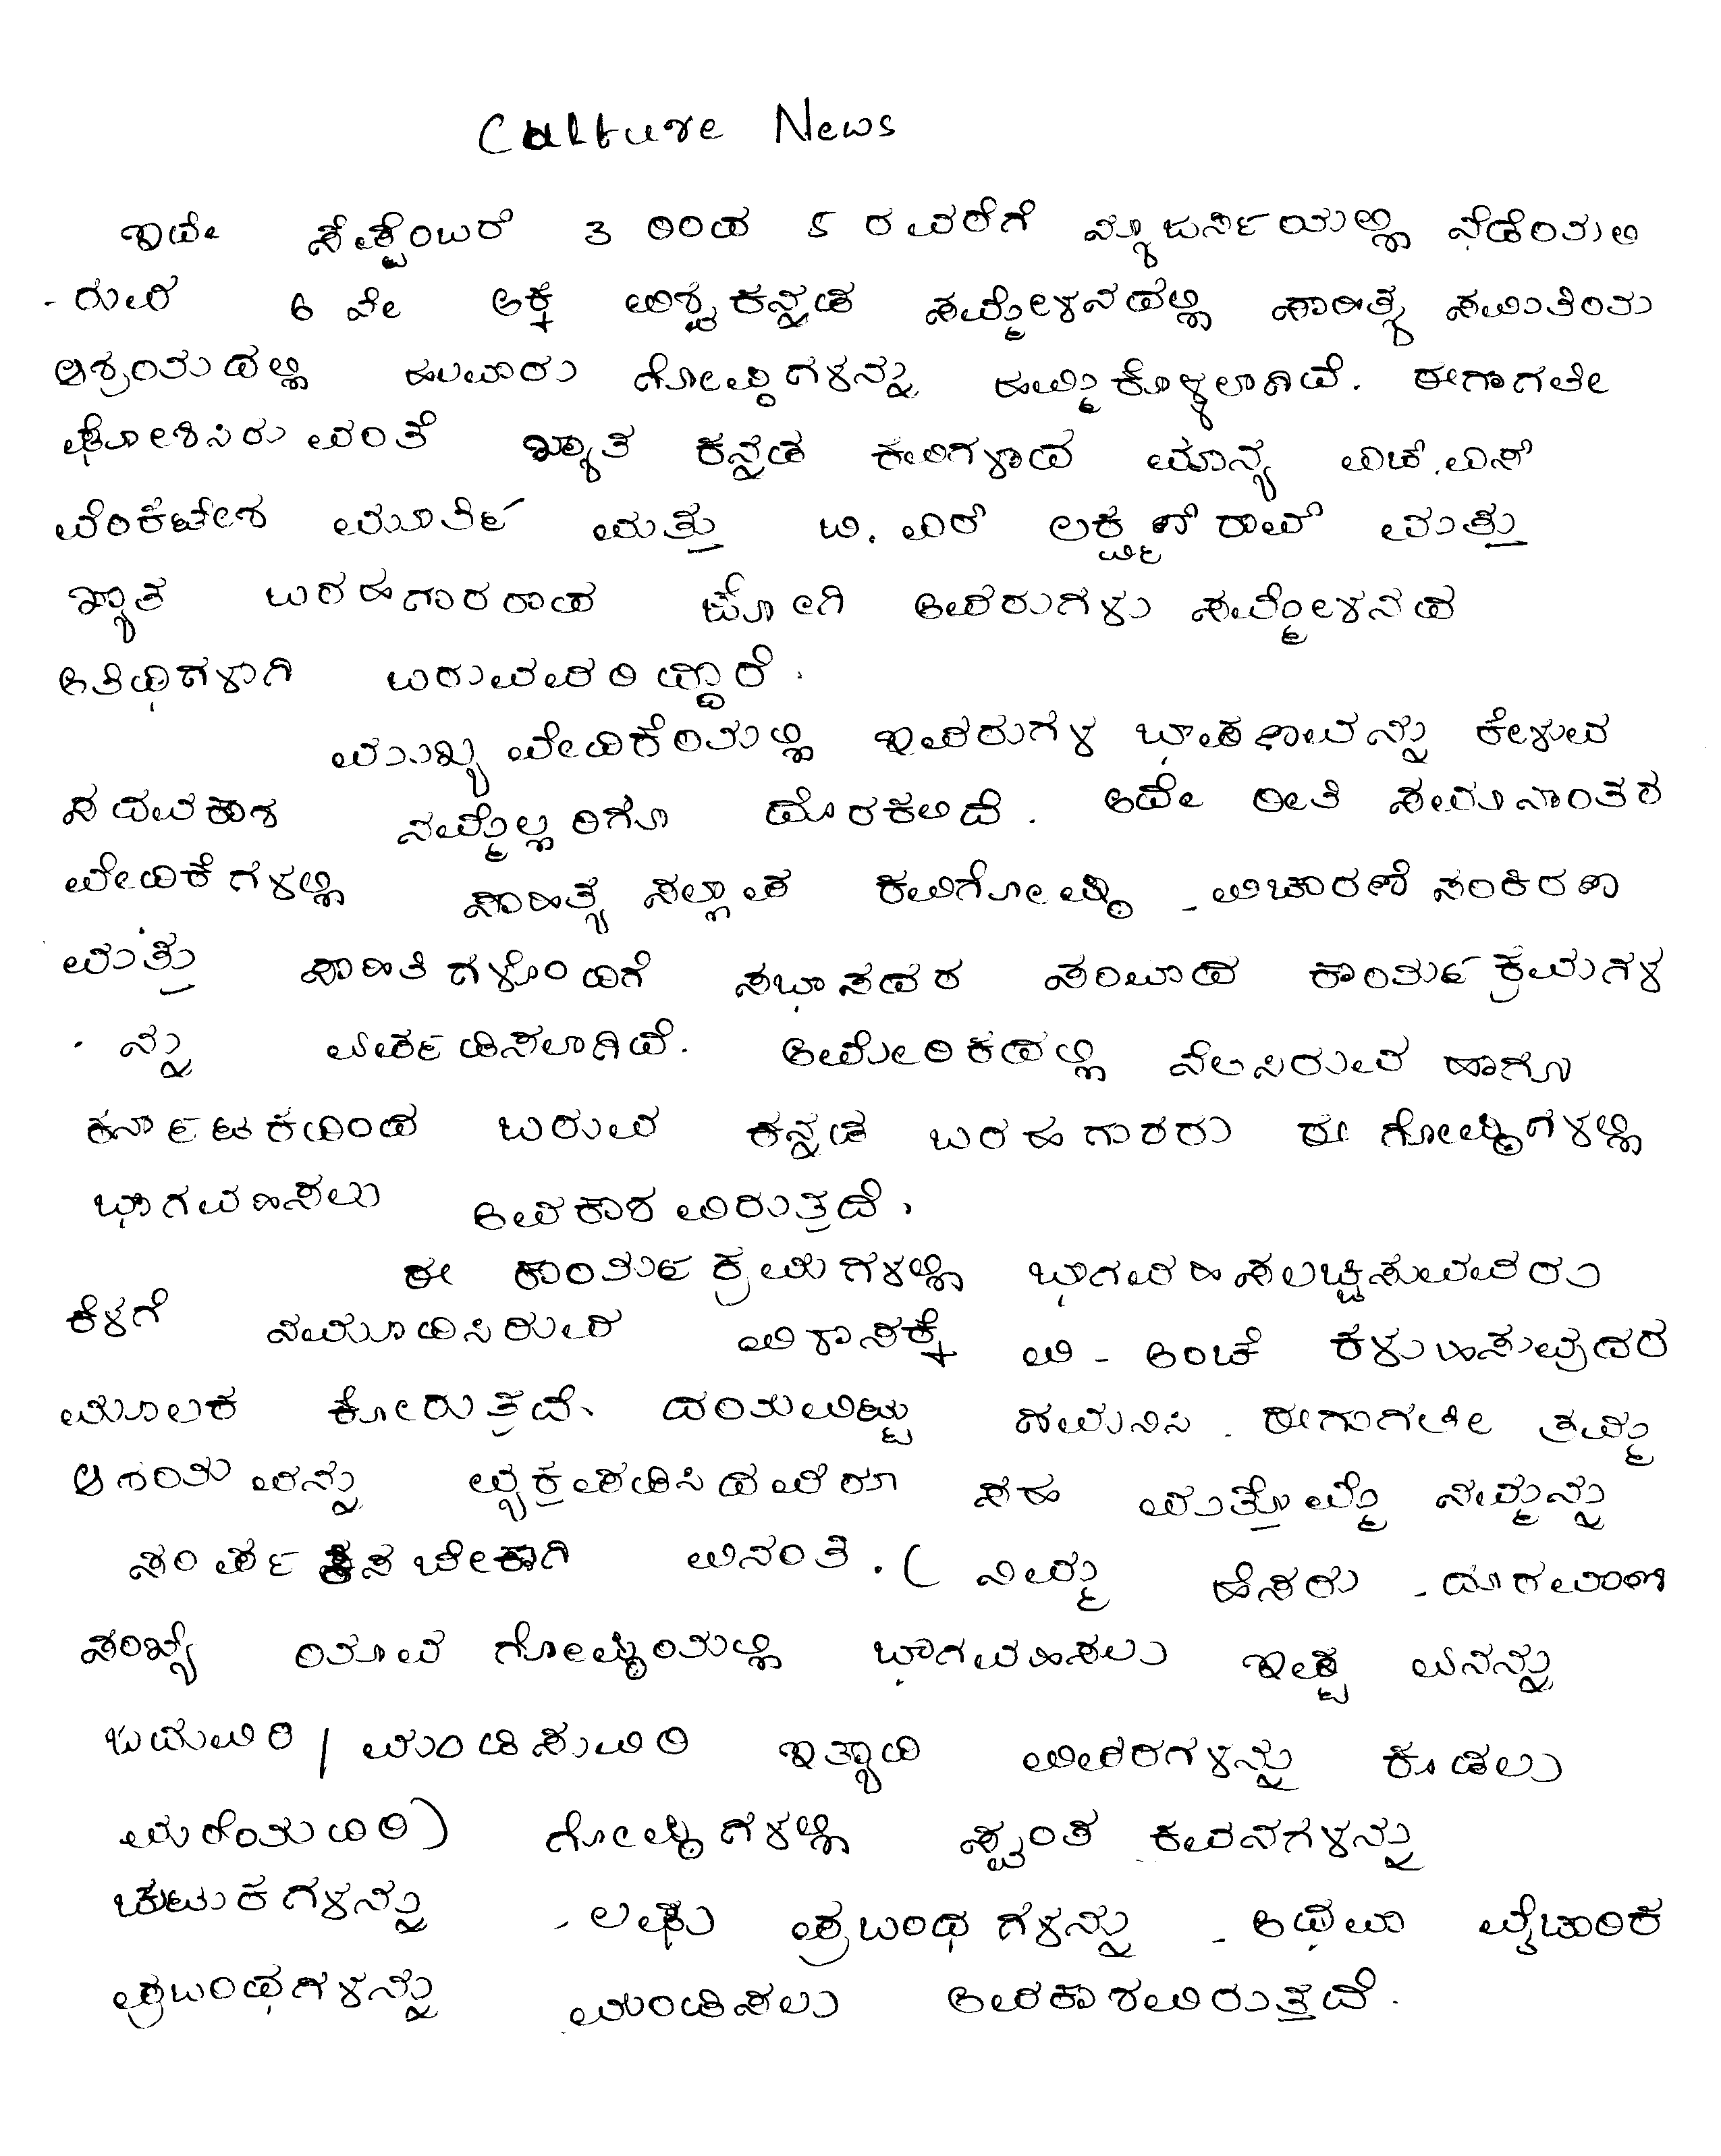 Culture News
ಇದೇ ಸೆಪ್ಟೆಂಬರ್ 3 ರಿಂದ 5 ರವರೆಗೆ ನ್ಯೂಜರ್ಸಿಯಲ್ಲಿ ನೆಡೆಯಲಿ
-ರುವ 6 ನೇ ಅಕ್ಕ ವಿಶ್ವಕನ್ನಡ ಸಮ್ಮೇಳನದಲ್ಲಿ ಸಾಹಿತ್ಯ ಸಮಿತಿಯ
ಆಶ್ರಯದಲ್ಲಿ ಹಲವಾರು ಗೋಷ್ಠಿಗಳನ್ನು ಹಮ್ಮಿಕೊಳ್ಳಲಾಗಿದೆ. ಈಗಾಗಲೇ
ಘೋಶಿಸಿರುವಂತೆ ಖ್ಯಾತ ಕನ್ನಡ ಕವಿಗಳಾದ ಮಾನ್ಯ ಎಚ್.ಎಸ್
ವೆಂಕಟೇಶ ಮೂರ್ತಿ ಮತ್ತು ಬಿ.ಆರ್ ಲಕ್ಷ್ಮಣ್ ರಾವ್ ಮತ್ತು
ಖ್ಯಾತ ಬರಹಗಾರರಾದ ಜೋಗಿ ಅವರುಗಳು ಸಮ್ಮೇಳನದ
ಅತಿಥಿಗಳಾಗಿ ಬರುವವರಿದ್ದಾರೆ.
ಮುಖ್ಯವೇದಿಕೆಯಲ್ಲಿ ಇವರುಗಳ ಭಾಷಣವನ್ನು ಕೇಳುವ
ಸದವಕಾಶ ನಮ್ಮೆಲ್ಲರಿಗೂ ದೊರಕಲಿದೆ. ಅದೇ ರೀತಿ ಸಮಾನಾಂತರ
ವೇದಿಕೆಗಳಲ್ಲಿ ಸಾಹಿತ್ಯ ಸಲ್ಲಾಪ ಕವಿಗೋಷ್ಠಿ -ವಿಚಾರಣೆ ಸಂಕಿರಣ
ಮತ್ತು ಸಾಹಿತಿಗಳೊಂದಿಗೆ ಸಭಾಸದರ ಸಂವಾದ ಕಾರ್ಯಕ್ರಮಗಳ
-ನ್ನು ಏರ್ಪಡಿಸಲಾಗಿದೆ. ಅಮೇರಿಕದಲ್ಲಿ ನೆಲಸಿರುವ ಹಾಗೂ
ಕರ್ನಾಟಕದಿಂದ ಬರುವ ಕನ್ನಡ ಬರಹಗಾರರು ಈ ಗೋಷ್ಠಿಗಳಲ್ಲಿ
ಭಾಗವಹಿಸಲು ಅವಕಾಶವಿರುತ್ತದೆ.
ಈ ಕಾರ್ಯಕ್ರಮಗಳಲ್ಲಿ ಭಾಗವಹಿಸಲಿಚ್ಚಿಸುವವರು
ಕೆಳಗೆ ನಮೂದಿಸಿರುವ ವಿಳಾಸಕ್ಕೆ ವಿ-ಅಂಚೆ ಕಳುಹಿಸುವುದರ
ಮೂಲಕ ಕೋರುತ್ತದೆ. ದಯವಿಟ್ಟು ಗಮನಿಸಿ. ಈಗಾಗಲೇ ತಮ್ಮ
ಆಸಯವನ್ನು ವ್ಯಕ್ತಪಡಿಸಿದವರೂ ಸಹ ಮತ್ತೊಮ್ಮೆ ನಮ್ಮನ್ನು
ಸಂಪರ್ಕಿಸಬೇಕಾಗಿ ವಿನಂತಿ. (ನಿಮ್ಮ ಹೆಸರು -ದೂರವಾಣಿ
ಸಂಖ್ಯೆ ಯಾವ ಗೋಷ್ಠಿಯಲ್ಲಿ ಭಾಗವಹಿಸಲು ಇಷ್ಟ ಏನನ್ನು
ಓದುವಿರಿ/ಮಂಡಿಸುವಿರಿ ಇತ್ಯಾದಿ ವಿವರಗಳನ್ನು ಕೂಡಲು
ಮರೆಯದಿರಿ) ಗೋಷ್ಠಿಗಳಲ್ಲಿ ಸ್ವಂತ ಕವನಗಳನ್ನು
ಚುಟುಕಗಳನ್ನು -ಲಘು ಪ್ರಬಂಧಗಳನ್ನು -ಅಥವಾ ವೈಚಾರಿಕ
ಪ್ರಬಂಧಗಳನ್ನು ಮಂಡಿಸಲು ಅವಕಾಶವಿರುತ್ತದೆ.